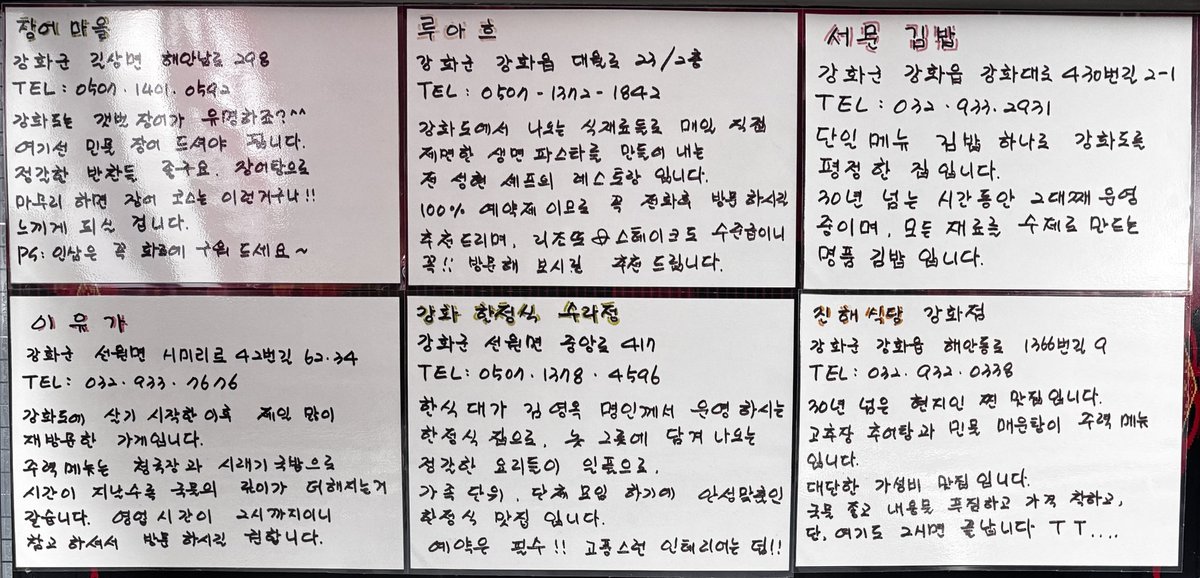 장어 마을
강화군 길상면 해안남로 298
TEL : 0507 · 1401 · 0592
강화도는 갯벌 장어가 유명하죠?^^
여기선 민물 장어 드셔야 합니다.
정갈한 반찬들 좋구요, 장어탕으로
마무리 하면 장어 코스는 이런거구나!!
느끼게 되실 겁니다.
PS : 인삼은 꼭 화로에 구워 드세요~
루아흐
강화군 강화읍 대월로 23/2층
TEL : 0507 - 1372 - 1842
강화도에서 나오는 식재료들로 매일 직접
제면한 생면 파스타를 만들어 내는
전 성현 셰프의 레스토랑 입니다.
100% 예약제 이므로 꼭 전화후 방문 하시길
추천드리며, 리조또 & 스테이크도 수준급이니
꼭!! 방문해 보시길 추천 드립니다.
서문 김밥
강화군 강화읍 강화대로 430번길 2-1
TEL : 032 · 933 · 2931
단일 메뉴 김밥 하나로 강화도를
평정한 집입니다.
30년 넘는 시간동안 2대째 운영
중이며, 모든 재료를 수제로 만드는
명품 김밥 입니다.
이유가
강화군 선원면 시미리로 42번길 62·34
TEL : 032 · 933 · 7676
강화도에 살기 시작한 이후 제일 많이
재방문한 가게입니다.
주력 메뉴는 청국장과 시래기 국밥으로
시간이 지날수록 국물의 깊이가 더해지는거
같습니다. 영업 시간이 2시까지이니
참고 하셔서 방문 하시길 권합니다.
강화 한정식 수라정
강화군 선원면 중앙로 417
TEL : 0507 · 1378 · 4596
한식 대가 김영옥 명인께서 운영 하시는
한정식 집으로, 놋 그릇에 담겨 나오는
정갈한 요리들이 일품으로,
가족 단위, 단체 모임 하기에 안성맞춤인
한정식 맛집 입니다.
예약은 필수!! 고풍스런 인테리어는 덤!!
진해 식당 강화점
강화군 강화읍 해안동로 1366번길 9
TEL : 032 · 932 · 0338
30년 넘은 현지인 찐 맛집입니다.
고추장 추어탕과 민물 매운탕이 주력 메뉴
입니다.
대단한 가성비 맛집 입니다.
국물 좋고 내용물 푸짐하고 가격 착하고,
단, 여기도 2시면 끝납니다 ㅜㅜ....